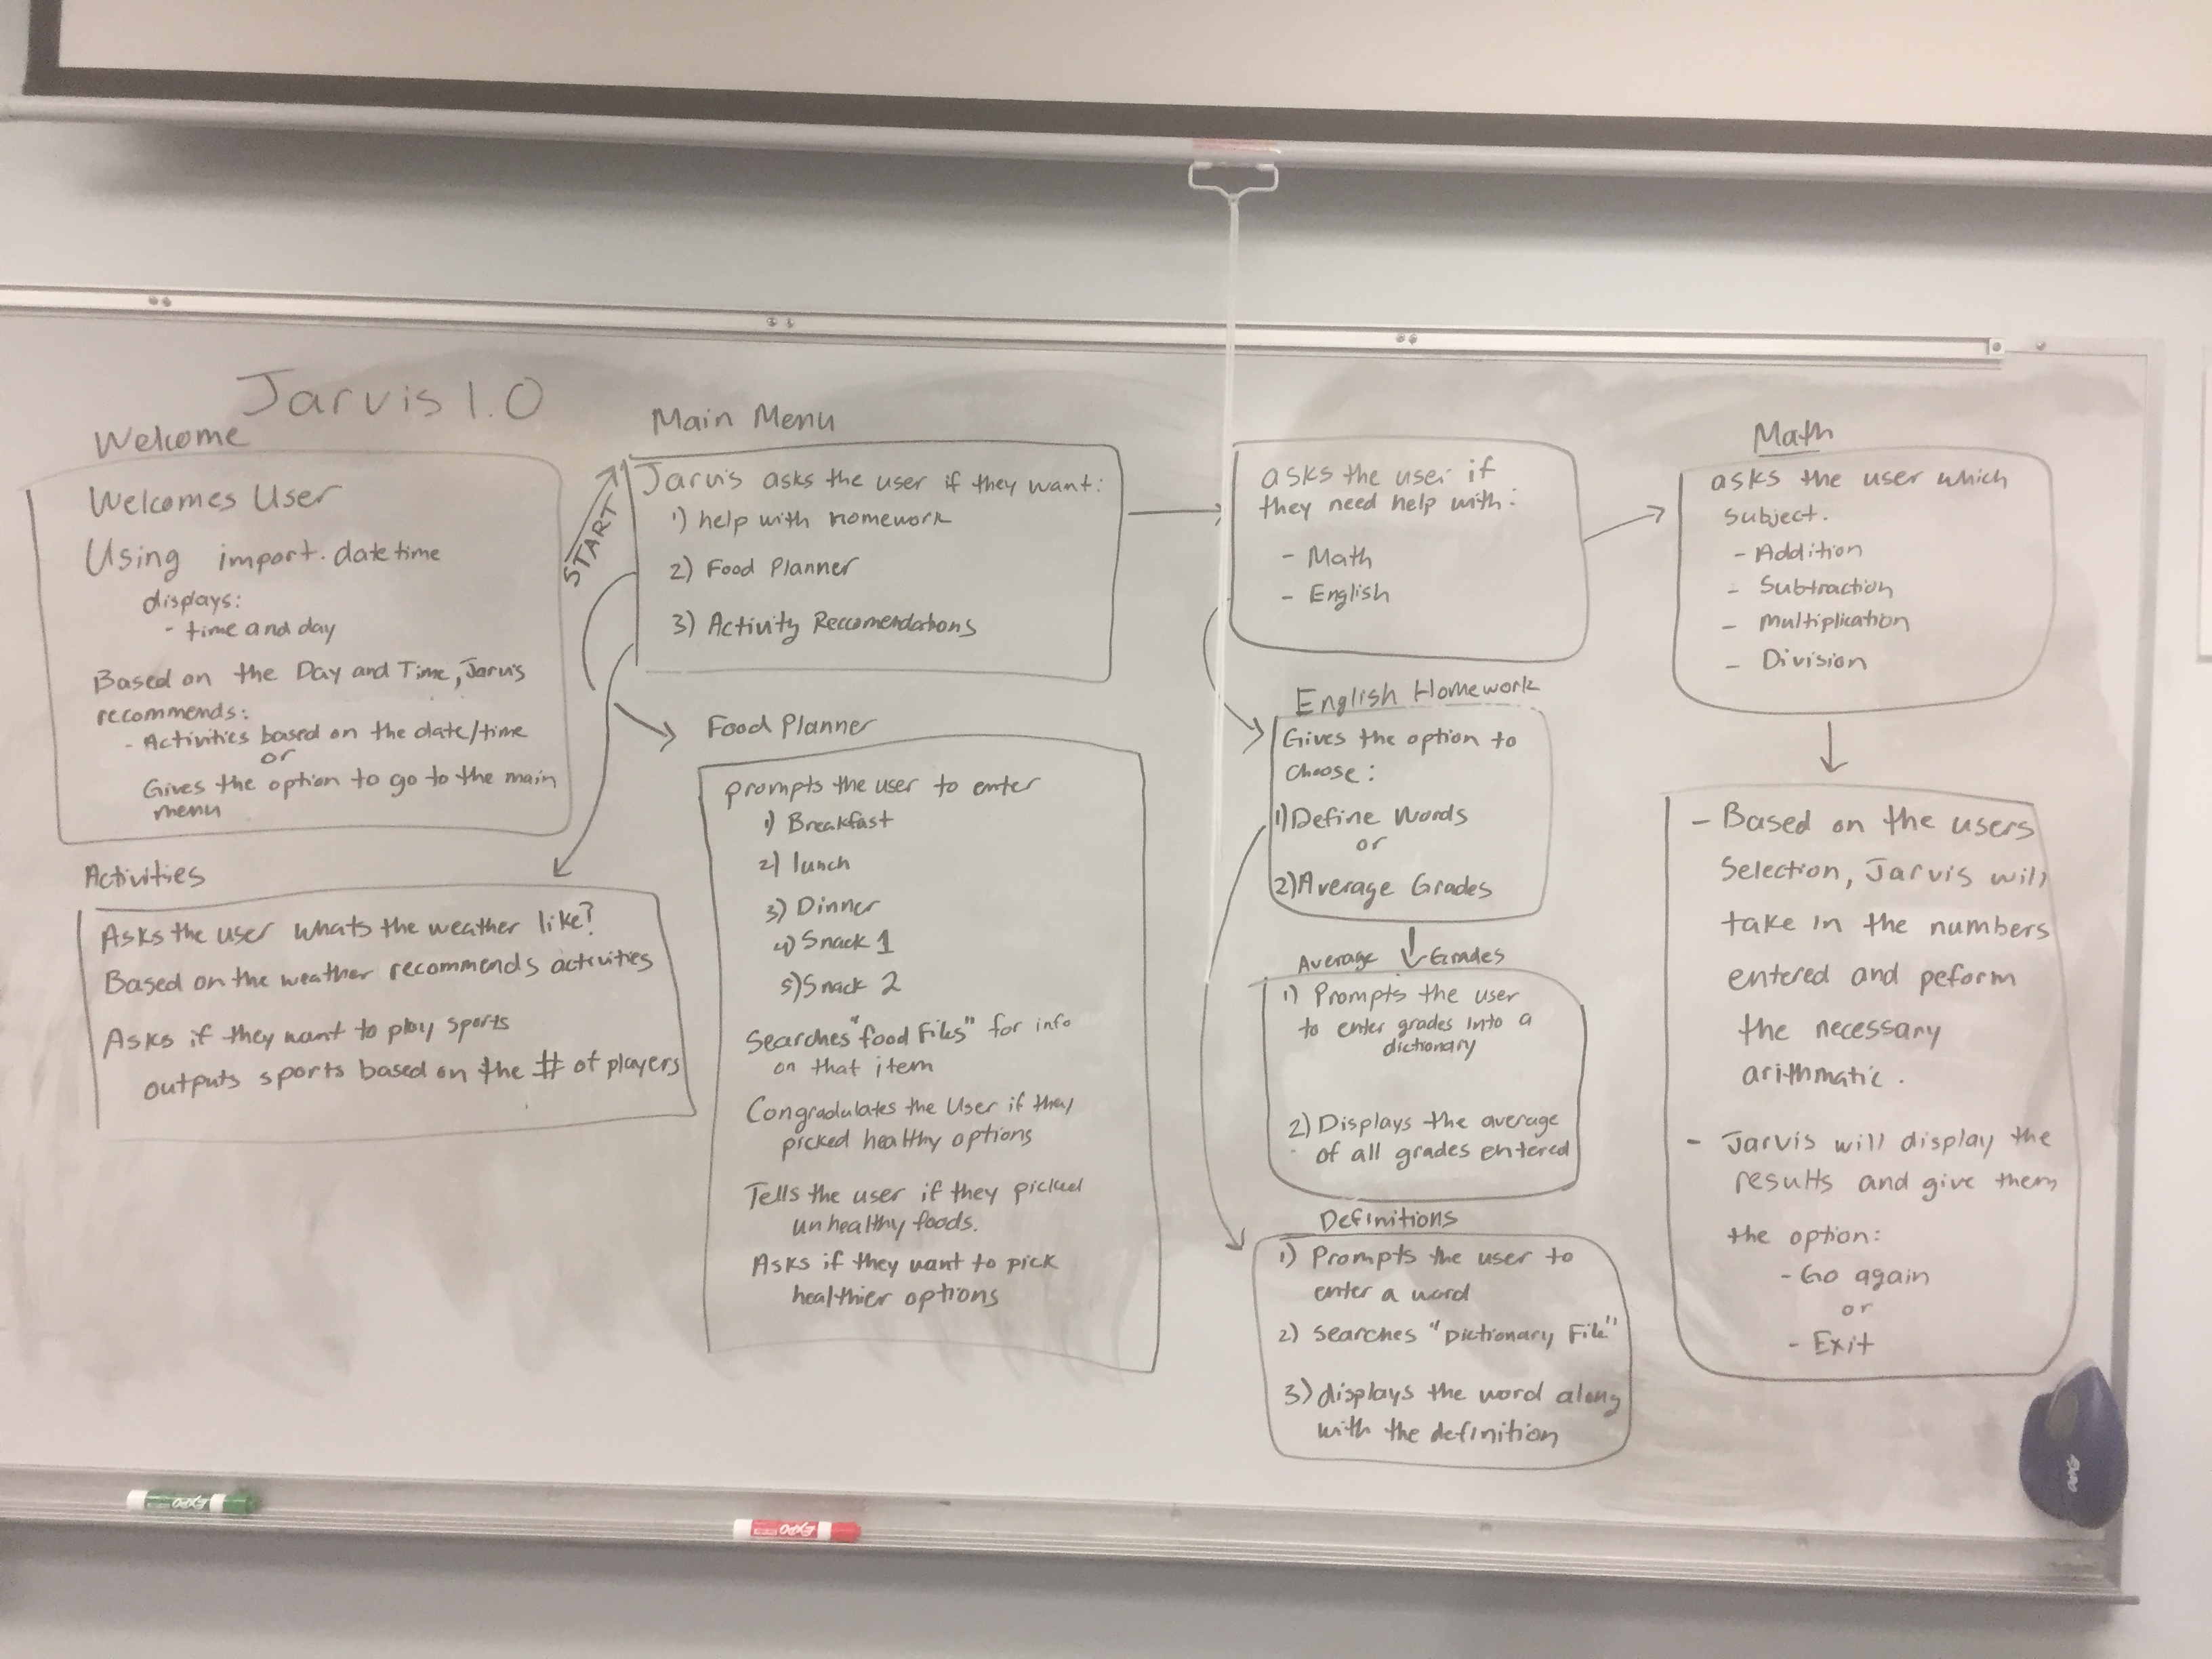 Jarvis 1.0
Welcome
Welcomes User
Using import.datetime
displays:
- time and day
Based on the Day and Time, Jarvis
recommends:
- Activities based on the date/time
or
Gives the option to go to the main
menu
Activities
Asks the user whats the weather like?
Based on the weather recommends activities
Asks if they want to play sports
outputs sports based on the # of players
START
Main Menu
Jarvis asks the user if they want:
1) help with homework
2) Food Planner
3) Activity Reccomendations
Food Planner
prompts the user to enter
1) Breakfast
2) lunch
3) Dinner
4) Snack 1
5) Snack 2
Searches "food Files" for info
on that item
Congradulates the User if they
picked healthy options
Tells the user if they picked
unhealthy foods.
Asks if they want to pick
healthier options
asks the user if
they need help with:
- Math
- English
English Homework
Gives the option to
choose:
1) Define Words
or
2) Average Grades
Average Grades
1) Prompts the user
to enter grades into a
dictionary
2) Displays the average
of all grades entered
Definitions
1) Prompts the user to
enter a word
2) searches "Dictionary File"
3) displays the word along
with the definition
Math
asks the user which
subject.
- Addition
- Subtraction
- Multiplication
- Division
- Based on the users
Selection, Jarvis will
take in the numbers
entered and peform
the necessary
arithmatic.
- Jarvis will display the
results and give them
the option:
- Go again
or
- Exit
EXPO
EXPO
EXPO